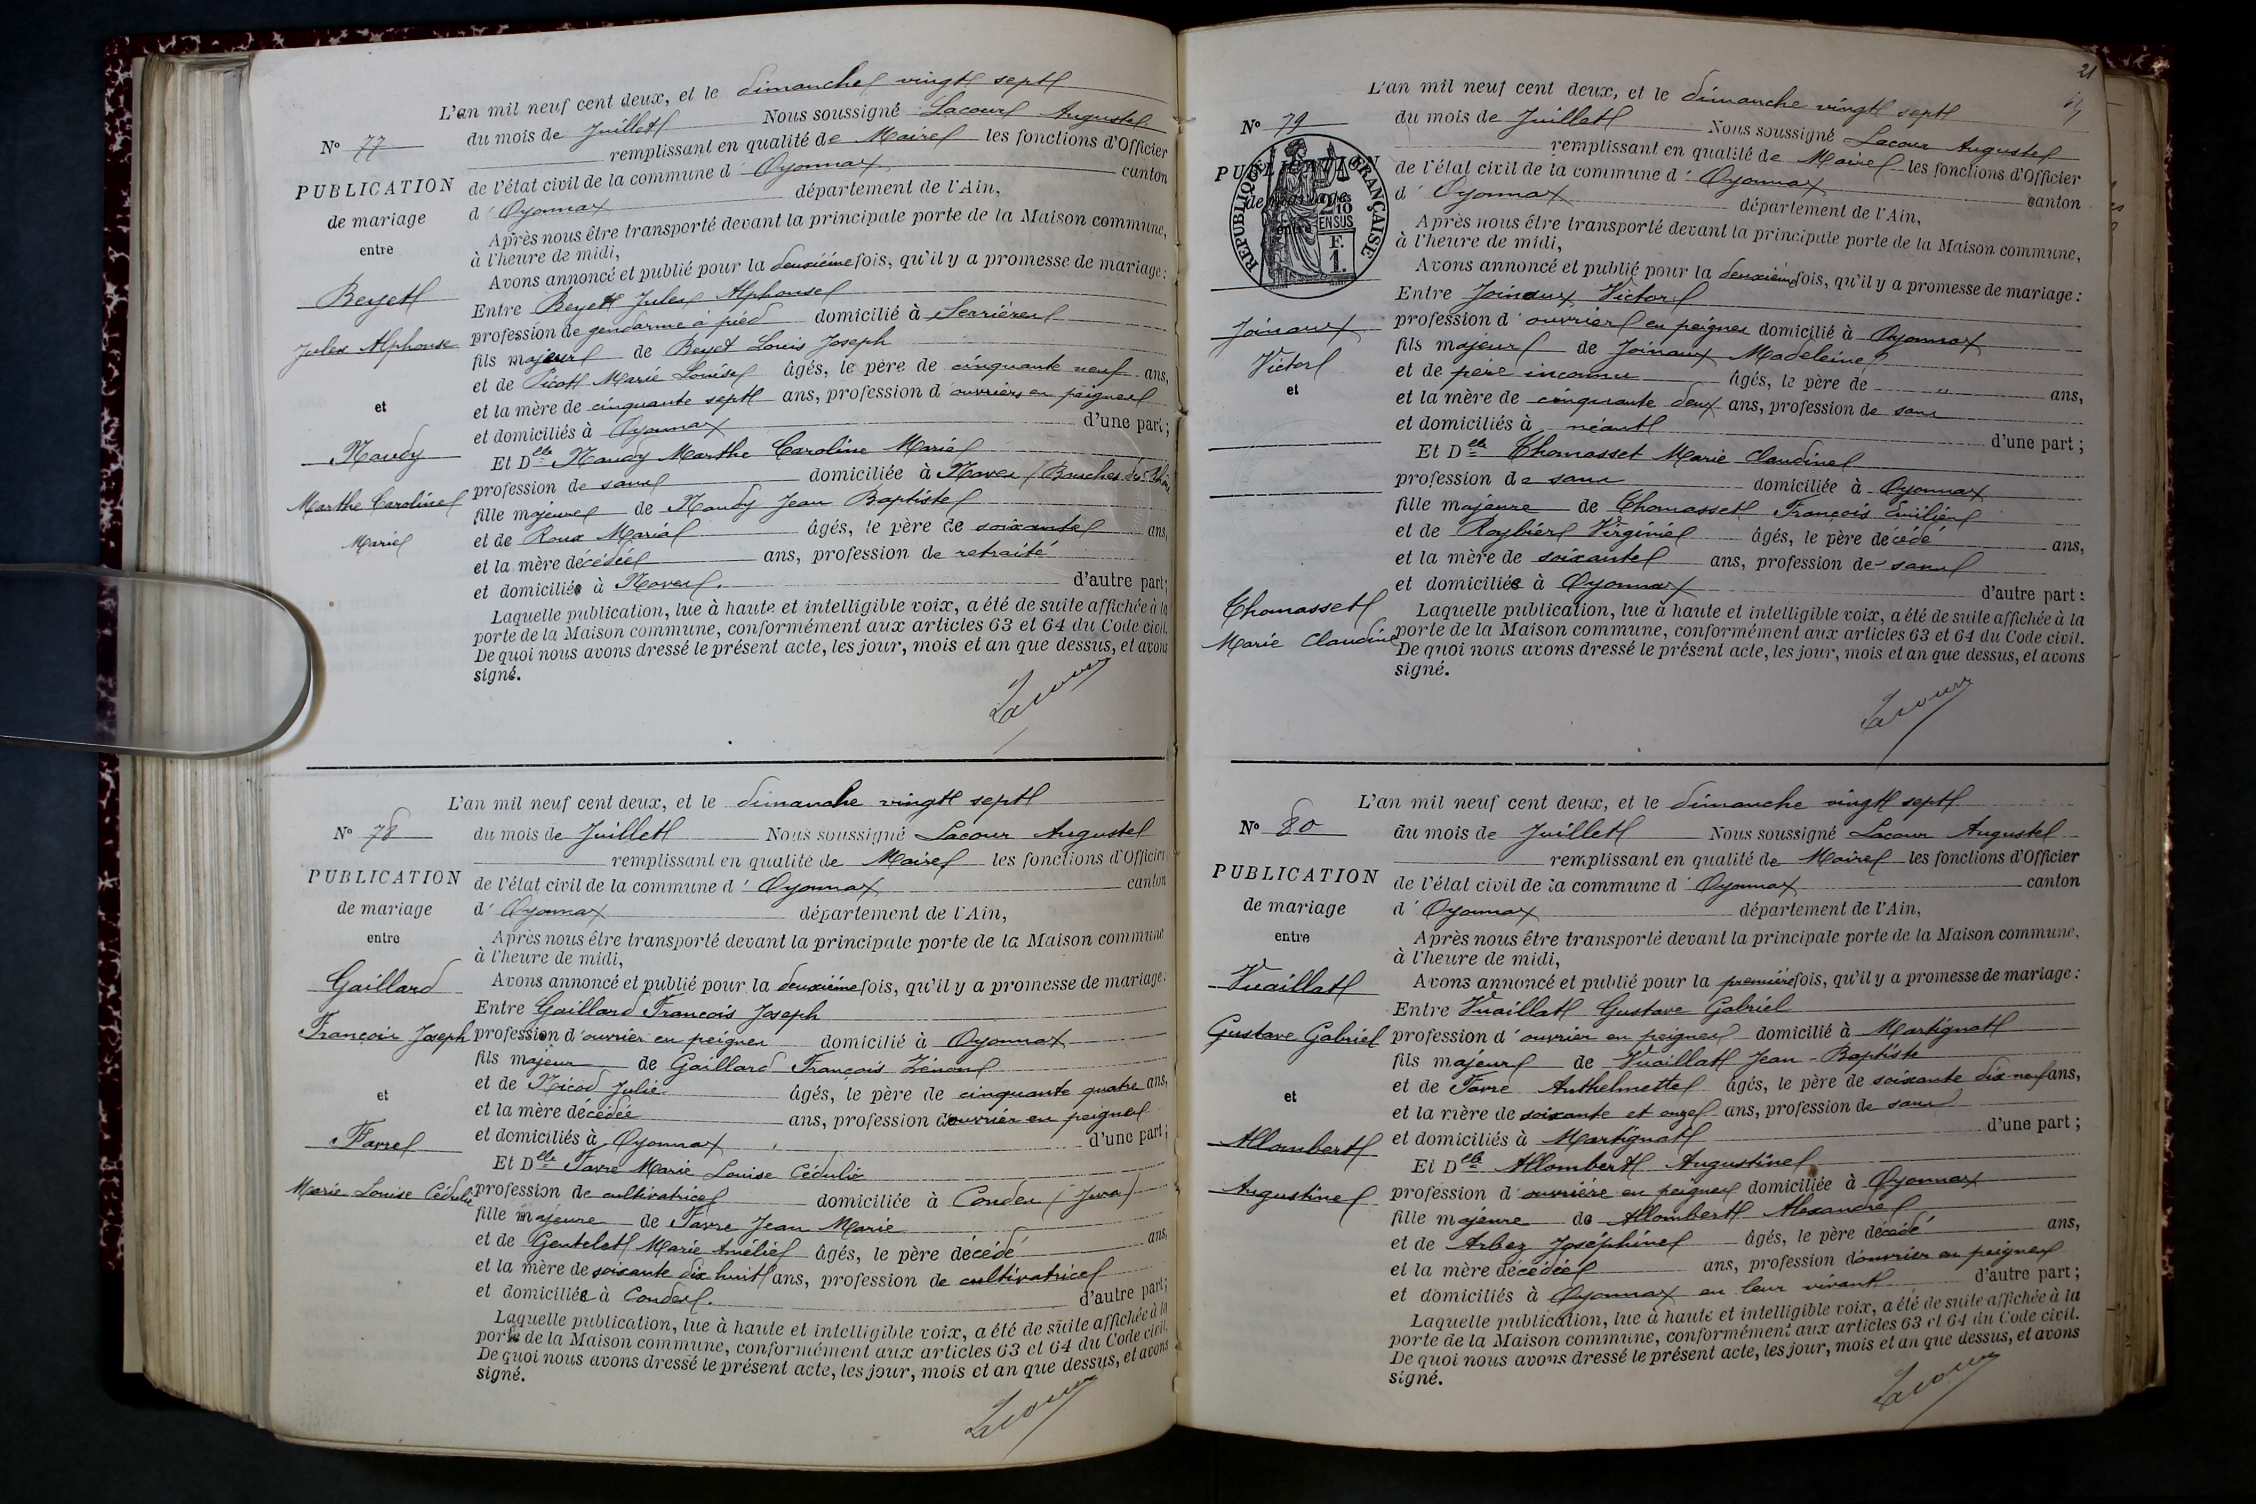 L'an mil neuf cent deux, et le dimanche vingt sept
N° 77
du mois de Juillet Nous soussigné Lacour Auguste
remplissant en qualité de Maire les fonctions d'Officier
PUBLICATION
de l'état civil de la commune d' Oyonnax canton
de mariage
d' Oyonnax département de l'Ain,
entre
Après nous être transporté devant la principale porte de la Maison commune,
à l'heure de midi,
Avons annoncé et publié pour la deuxième fois, qu'il y a promesse de mariage :
Beyet
Entre Beyet Jules Alphonse
Jules Alphonse
profession de gendarme à pied domicilié à Serrières
fils majeur de Beyet Louis Joseph
et de Picot Marie Louise âgés, le père de cinquante neuf ans,
et
et la mère de cinquante sept ans, profession d ouvriers en peignes
et domiciliés à Oyonnax d'une part ;
Naudy
Et Dlle Naudy Marthe Caroline Marie
profession de sans domiciliée à Noves (Bouches du Rhône
Marthe Caroline
Marie
fille majeure de Naudy Jean Baptiste
et de Roux Maria âgés, le père de soixante ans,
et la mère décédée ans, profession de retraité
et domiciliés à Noves. d'autre part;
Laquelle publication, lue à haute et intelligible voix, a été de suite affichée à la
porte de la Maison commune, conformément aux articles 63 et 64 du Code civil.
De quoi nous avons dressé le présent acte, les jour, mois et an que dessus, et avons
signé.
Lacour
L'an mil neuf cent deux, et le dimanche vingt sept
N° 78
du mois de Juillet Nous soussigné Lacour Auguste
remplissant en qualité de Maire les fonctions d'Officier
PUBLICATION
de l'état civil de la commune d' Oyonnax canton
de mariage
d' Oyonnax département de l'Ain,
entre
Après nous être transporté devant la principale porte de la Maison commune
à l'heure de midi,
Gaillard
Avons annoncé et publié pour la deuxième fois, qu'il y a promesse de mariage :
Entre Gaillard François Joseph
François Joseph
profession d'ouvrier en peignes domicilié à Oyonnax
fils majeur de Gaillard François Zénon
et
et de Nicod Julie âgés, le père de cinquante quatre ans,
et la mère décédée ans, profession d'ouvrier en peignes
Favre
et domiciliés à Oyonnax d'une part ;
Et Dlle Favre Marie Louise Cédulie
Marie Louise Cédulie
profession de cultivatrice domiciliée à Condes (Jura)
fille majeure de Favre Jean Marie
et de Gentelet Marie Amélie âgés, le père décédé ans,
et la mère de soixante dix huit ans, profession de cultivatrice
et domiciliés à Condes. d'autre part;
Laquelle publication, lue à haute et intelligible voix, a été de suite affichée à la
porte de la Maison commune, conformément aux articles 63 et 64 du Code civil.
De quoi nous avons dressé le présent acte, les jour, mois et an que dessus, et avons
signé.
Lacour
21
L'an mil neuf cent deux, et le dimanche vingt sept
N° 79
du mois de Juillet Nous soussigné Lacour Auguste
remplissant en qualité de Maire les fonctions d'Officier
PUBLICATION
de l'état civil de la commune d' Oyonnax
de mariage
d' Oyonnax département de l'Ain, canton
entre
RÉPUBLIQUE FRANÇAISE
2/10
EN SUS
F.
1.
Après nous être transporté devant la principale porte de la Maison commune,
à l'heure de midi,
Avons annoncé et publié pour la deuxième fois, qu'il y a promesse de mariage :
Entre Joinaux Victor
Joinaux
profession d' ouvrier en peignes domicilié à Oyonnax
Victor
fils majeur de Joinaux Madeleine
et
et de père inconnu âgés, le père de " ans,
et la mère de cinquante deux ans, profession de sans
et domiciliés à néant d'une part ;
Et Dlle Thomasset Marie Claudine
profession de sans domiciliée à Oyonnax
fille majeure de Thomasset François Emilien
et de Roybier Virginie âgés, le père décédé ans,
et la mère de soixante ans, profession de sans
et domiciliés à Oyonnax d'autre part :
Thomasset
Marie Claudine
Laquelle publication, lue à haute et intelligible voix, a été de suite affichée à la
porte de la Maison commune, conformément aux articles 63 et 64 du Code civil.
De quoi nous avons dressé le présent acte, les jour, mois et an que dessus, et avons
signé.
Lacour
L'an mil neuf cent deux, et le dimanche vingt sept
N° 80
du mois de Juillet Nous soussigné Lacour Auguste
remplissant en qualité de Maire les fonctions d'Officier
PUBLICATION
de l'état civil de la commune d' Oyonnax canton
de mariage
d' Oyonnax département de l'Ain,
entre
Après nous être transporté devant la principale porte de la Maison commune,
à l'heure de midi,
Vuaillat
Avons annoncé et publié pour la première fois, qu'il y a promesse de mariage :
Entre Vuaillat Gustave Gabriel
Gustave Gabriel
profession d' ouvrier en peignes domicilié à Martignat
fils majeur de Vuaillat Jean-Baptiste
et
et de Favre Anthelmette âgés, le père de soixante dix-neuf ans,
et la mère de soixante et onze ans, profession de sans
Allombert
et domiciliés à Martignat d'une part ;
Et Dlle Allombert Augustine
Augustine
profession d' ouvrière en peignes domiciliée à Oyonnax
fille majeure de Allombert Alexandre
et de Arbez Joséphine âgés, le père décédé ans,
et la mère décédée ans, profession d'ouvrier en peignes
et domiciliés à Oyonnax en leur vivant d'autre part ;
Laquelle publication, lue à haute et intelligible voix, a été de suite affichée à la
porte de la Maison commune, conformément aux articles 63 et 64 du Code civil.
De quoi nous avons dressé le présent acte, les jour, mois et an que dessus, et avons
signé.
Lacour